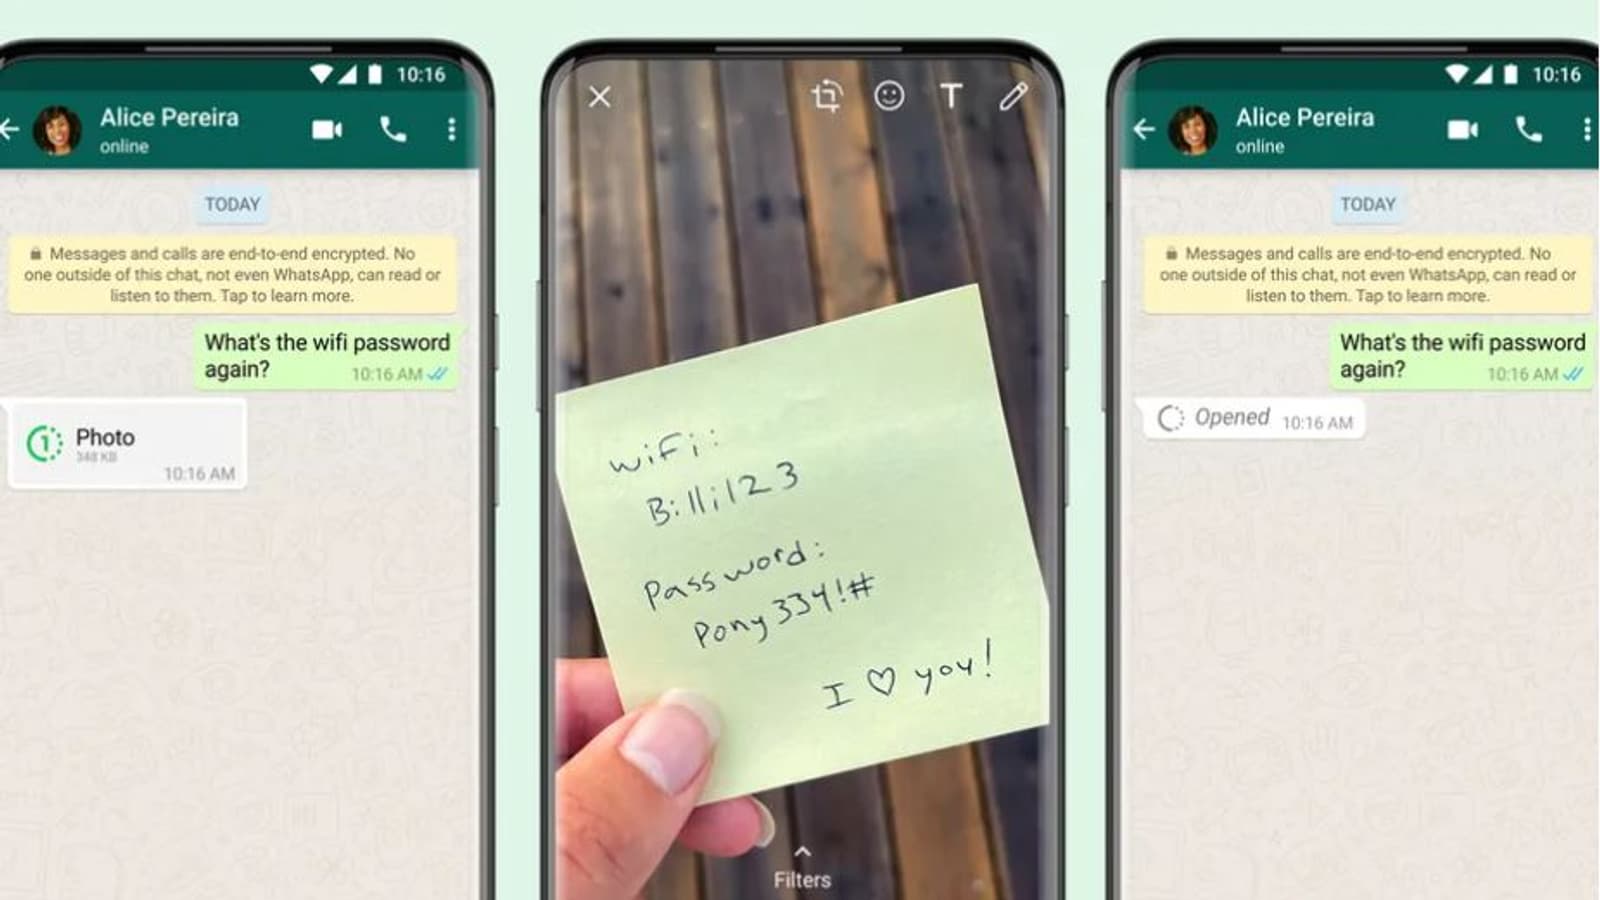 10:16
Alice Pereira
online
TODAY
Messages and calls are end-to-end encrypted. No
one outside of this chat, not even WhatsApp, can read or
listen to them. Tap to learn more.
What's the wifi password
again?
10:16 AM
1
Photo
348 KB
10:16 AM
T
wifi:
Billi123
Password:
Pony334!#
I ♡ you!
Filters
10:16
Alice Pereira
online
TODAY
Messages and calls are end-to-end encrypted. No
one outside of this chat, not even WhatsApp, can read or
listen to them. Tap to learn more.
What's the wifi password
again?
10:16 AM
Opened 10:16 AM